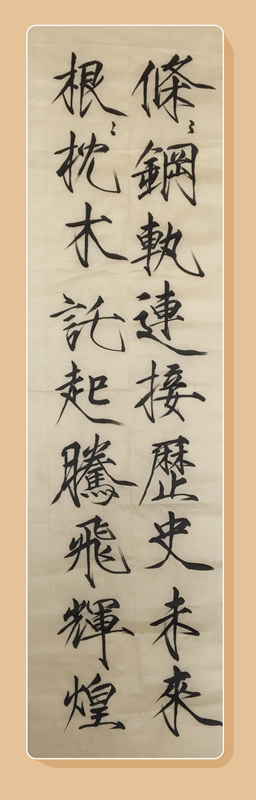 條〻鋼軌連接歷史未來
根〻枕木託起騰飛輝煌